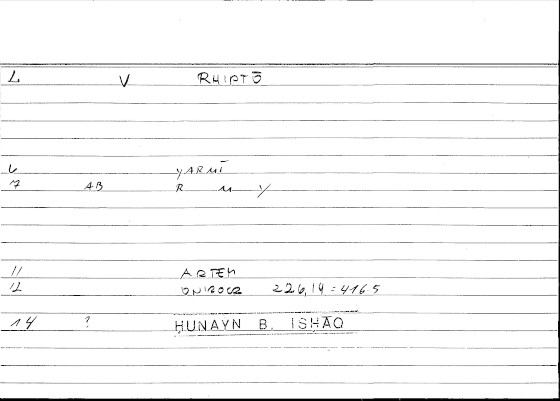 1 V RHIPTŌ
6 YARMĪ
7 AB R M Y
11 ARTEM
12 ONIROCR 226,14 = 416.5
14 ? HUNAYN B. ISHĀQ